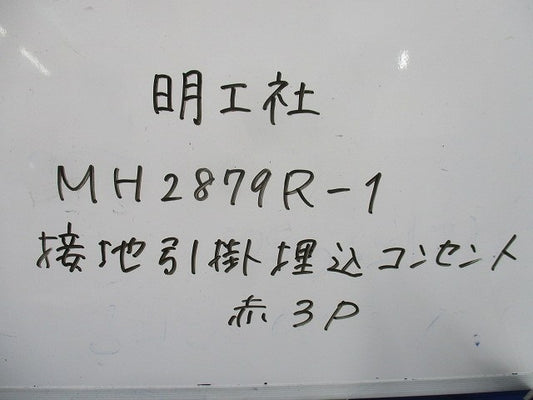 明工社
MH2879R-1
接地引掛埋込コンセント
赤3P